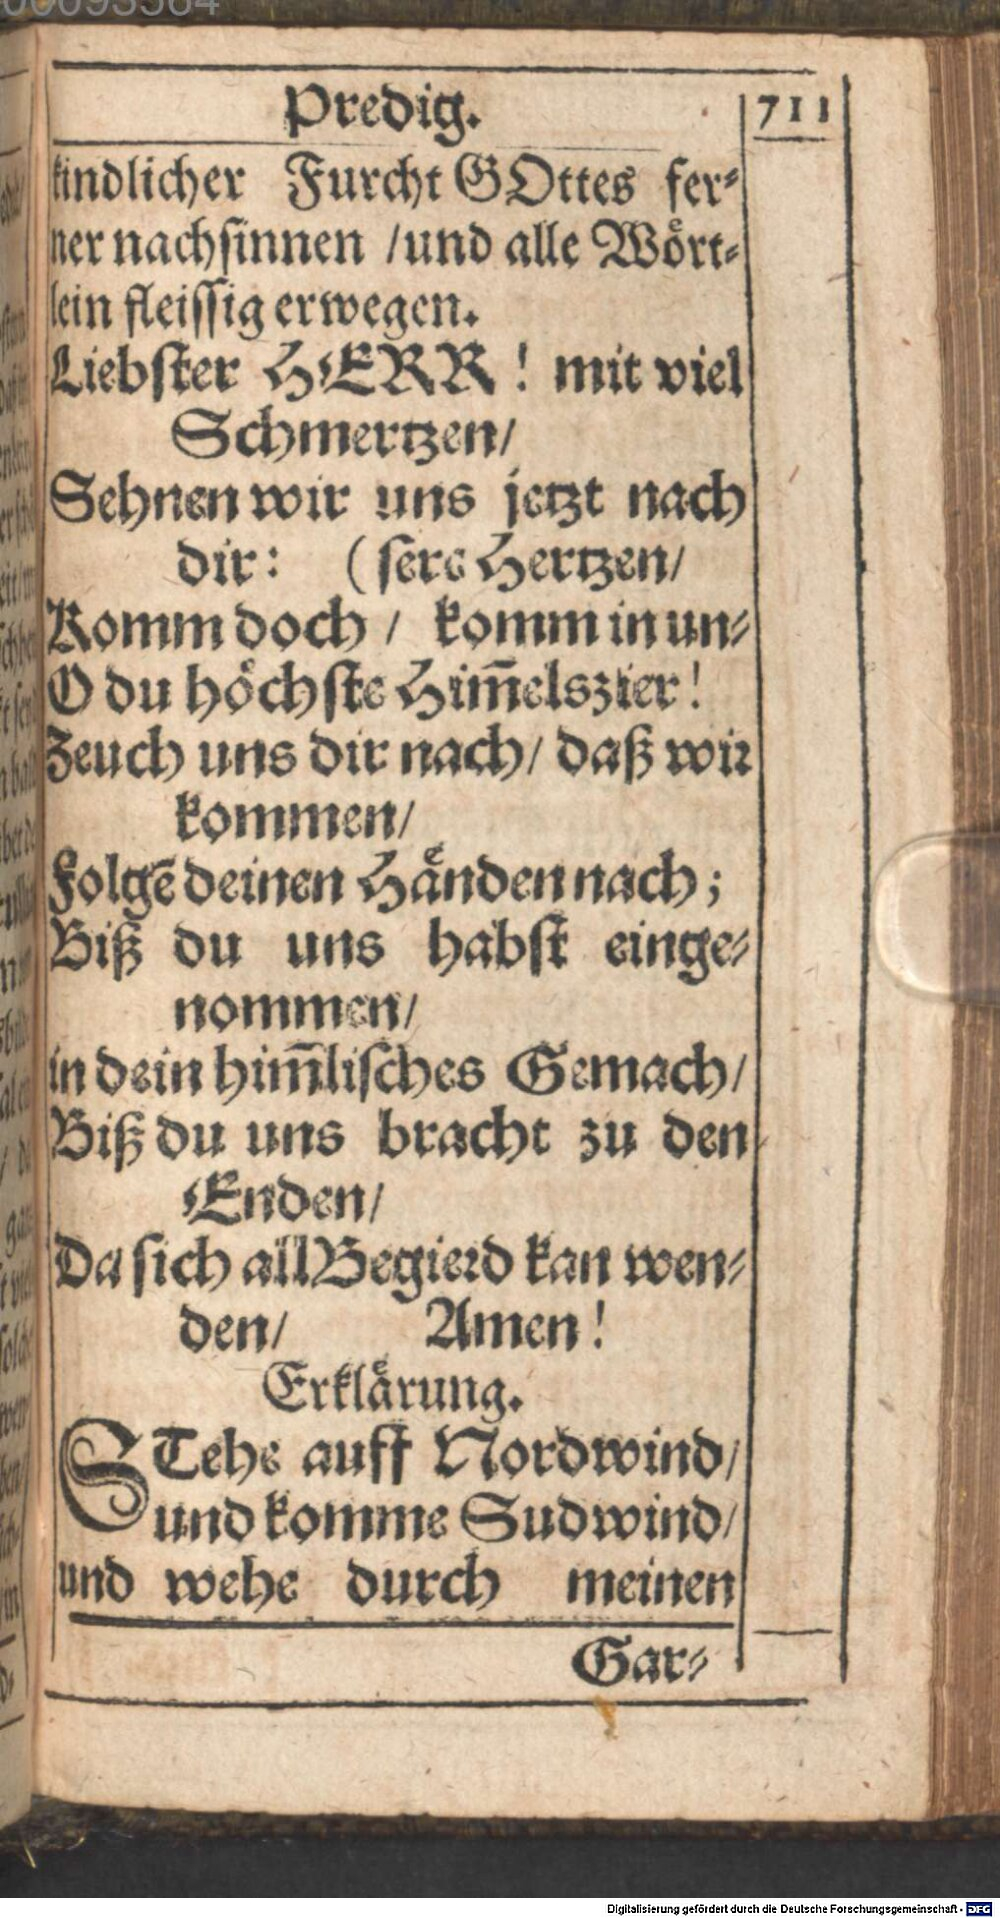 Predig.
711
kindlicher Furcht GOttes fer⸗
ner nachsinnen /und alle Woͤrt⸗
lein fleissig erwegen.
Liebster HERR! mit viel
Schmertzen/
Sehnen wir uns jetzt nach
dir: (sere Hertzen/
Komm doch / komm in un⸗
O du hoͤchste Him̄elszier!
Zeuch uns dir nach/ daß wir
kommen/
Folgē deinen Haͤnden nach;
Biß du uns habst einge⸗
nommen/
in dein him̄lisches Gemach/
Biß du uns bracht zu den
Enden/
Da sich all Begierd kan wen⸗
den/ Amen!
Erklaͤrung.
STehe auff Nordwind/
und komme Sudwind/
und wehe durch meinen
Gar⸗
Digitalisierung gefördert durch die Deutsche Forschungsgemeinschaft - DFG